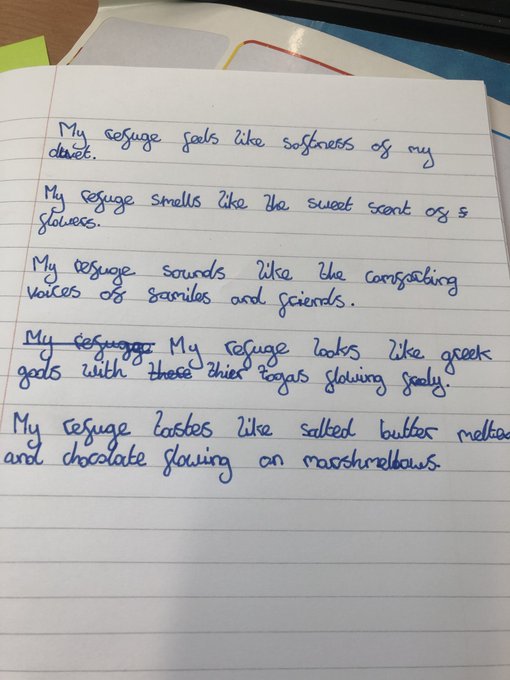 My refuge feels like softness of my
duvet.
My refuge smells like the sweet scent of
flowers.
My refuge sounds like the comforting
voices of familes and friends.
My refugge My refuge looks like greek
gods with there thier togas flowing feely.
My refuge tastes like salted butter melted
and chocolate flowing on marshmellows.